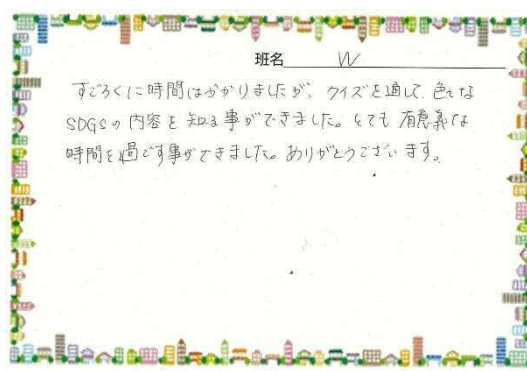 班名 W
すごろくに時間はかかりましたが、クイズを通して、色々な
SDGSの内容を知る事ができました。とても有意義な
時間を過ごす事ができました。ありがとうございます。